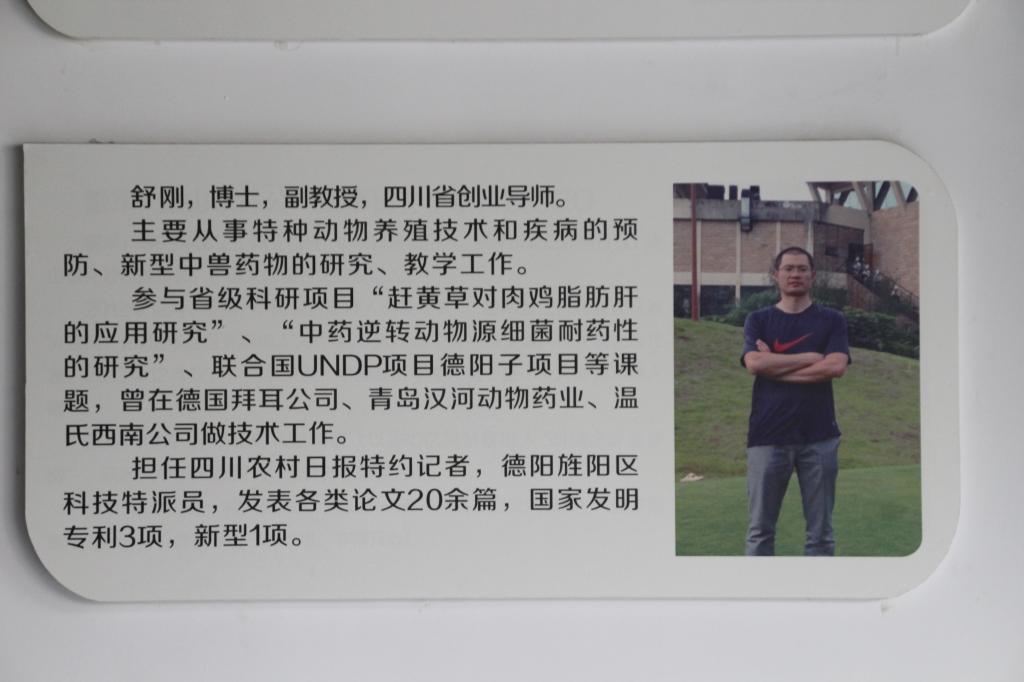 舒刚，博士，副教授，四川省创业导师。
主要从事特种动物养殖技术和疾病的预
防、新型中兽药物的研究、教学工作。
参与省级科研项目“赶黄草对肉鸡脂肪肝
的应用研究”、“中药逆转动物源细菌耐药性
的研究”、联合国UNDP项目德阳子项目等课
题，曾在德国拜耳公司、青岛汉河动物药业、温
氏西南公司做技术工作。
担任四川农村日报特约记者，德阳旌阳区
科技特派员，发表各类论文20余篇，国家发明
专利3项，新型1项。